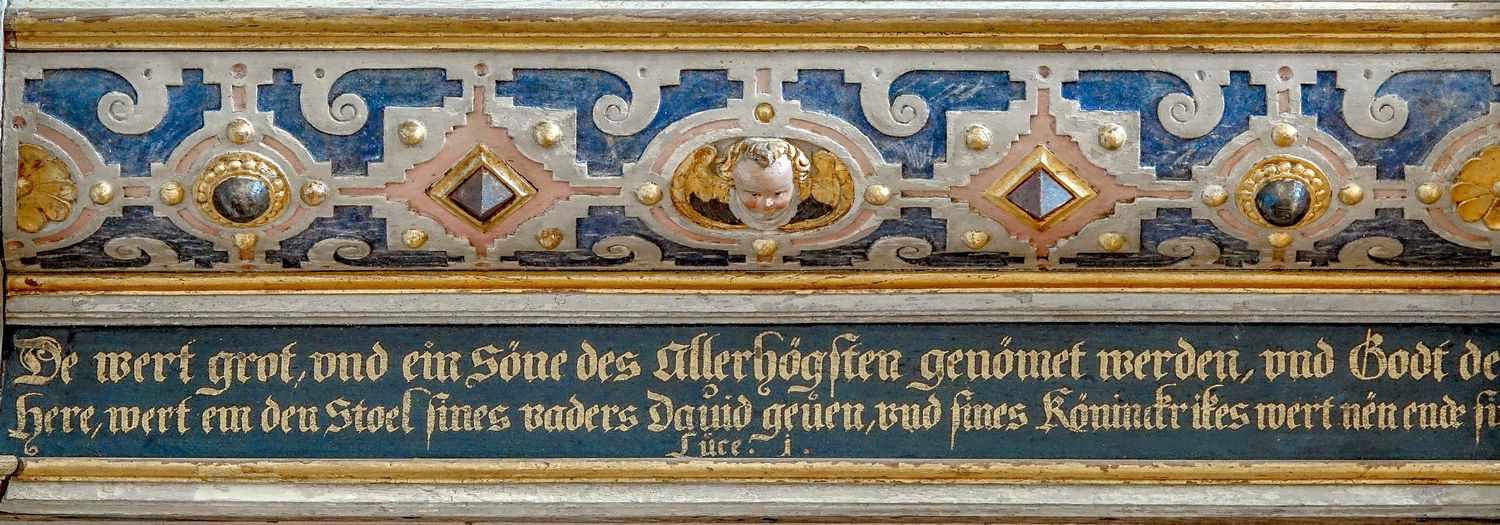 De wert grot, vnd ein Söne des Allerhögsten genömet werden, vnd Godt de
Here, wert em den Stoel sines vaders Dauid geuen, vnd sines Köninckrikes wert nën ende si
Luce. 1.